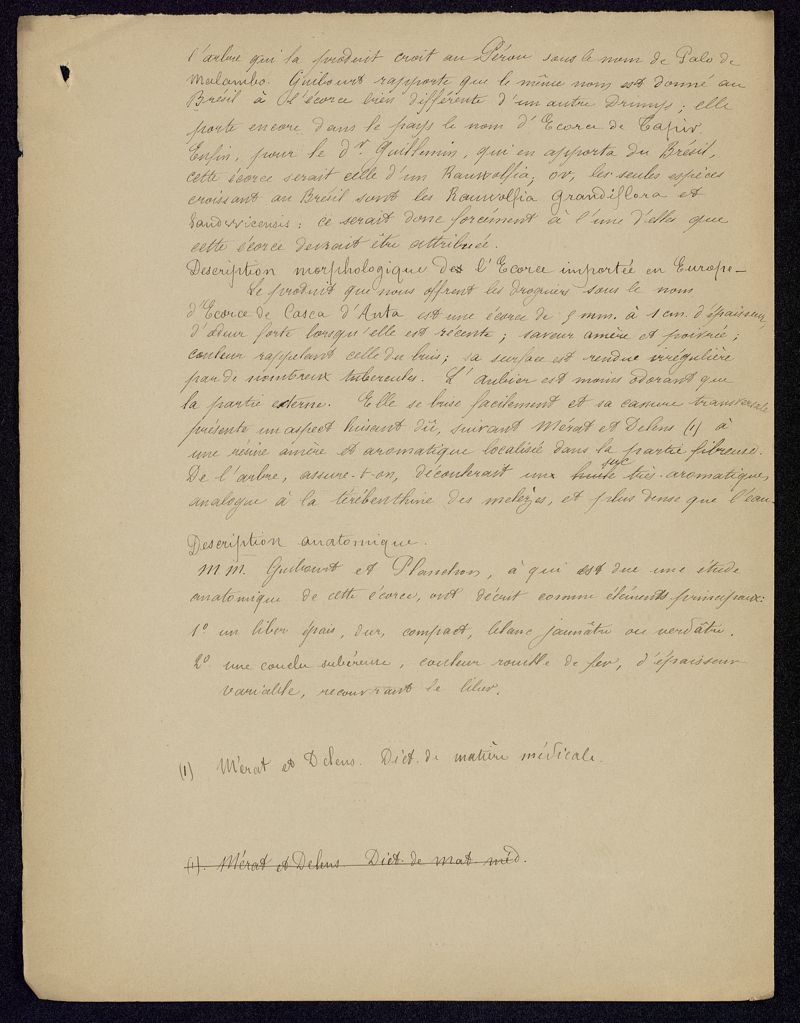 l'arbre qui la produit croit au Pérou sous le nom de Palo de
Malambo. Guibourt rapporte que le même nom est donné au
Brésil à l'écorce bien différente d'un autre Drimys ; elle
porte encore dans le pays le nom d'Ecorce de Tapir.
Enfin, pour le dr. Guillemin, qui en apporta du Brésil,
cette écorce serait celle d'un Rauwolfia ; or, les seules espèces
croissant au Brésil sont les Rauwolfia grandiflora et
Sandwicensis : ce serait donc forcément à l'une d'elles que
cette écorce devrait être attribuée.
Description morphologique de l'Ecorce importée en Europe –
Le produit que nous offrent les droguiers sous le nom
d'Ecorce de Casca d'Anta est une écorce de 5 mm. à 1 cm. d'épaisseur,
d'odeur forte lorsqu'elle est récente ; saveur amère et poivrée ;
couleur rappelant celle du buis ; sa surface est rendue irrégulière
par de nombreux tubercules. L'aubier est moins odorant que
la partie externe. Elle se brise facilement et sa cassure transversale
présente un aspect luisant dû, suivant Mérat et Delens (1) à
une résine amère et aromatique localisée dans la partie fibreuse.
De l'arbre, assure-t-on, découlerait un huile suc très-aromatique,
analogue à la térébenthine des mélèzes, et plus dense que l'eau.
Description anatomique.
MM. Guibourt et Planchon, à qui est due une étude
anatomique de cette écorce, ont décrit comme éléments principaux :
1° un liber épais, dur, compact, blanc jaunâtre ou verdâtre.
2° une couche subéreuse, couleur rouille de fer, d'épaisseur
variable, recouvrant le liber.
(1) Mérat et Delens. Dict. de matière médicale.
(1). Mérat et Delens. Dict. de mat. méd.